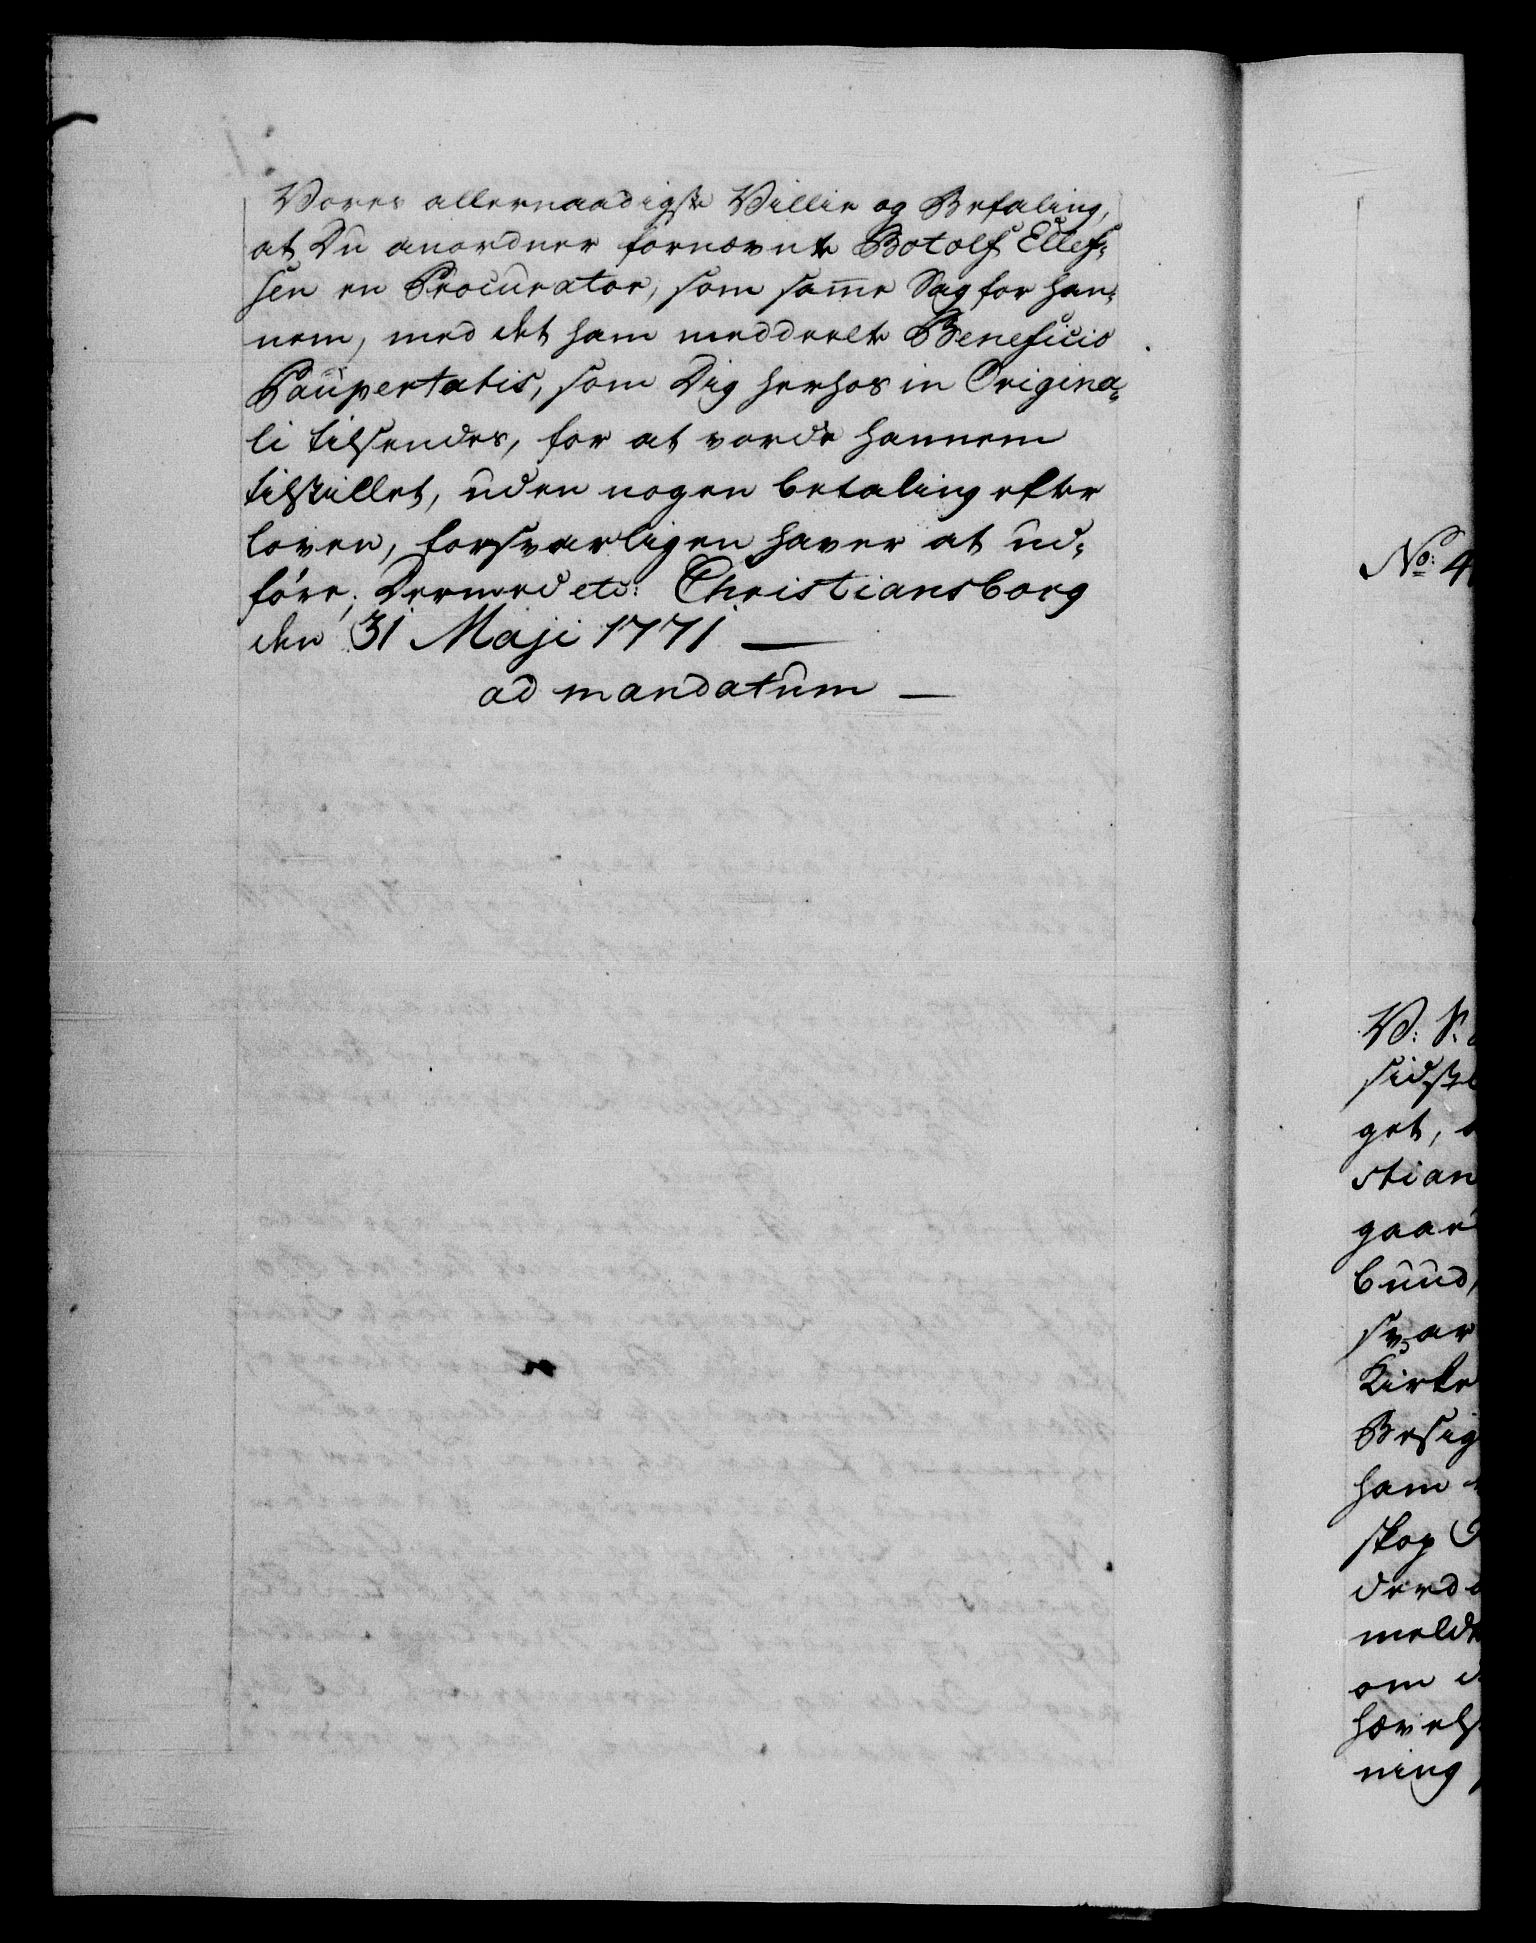 Vores allernaadigste Villie og Befaling,
at Du anordner fornævnte Botolf Ellef-
sen en Procurator, som samme Sag for han-
nem, med det ham meddeelte Beneficio
Paupertatis, som Dig herhos in Origina-
li tilsendes, for at vorde hannem
tilstillet, uden nogen betaling efter
loven, forsvarligen haver at ud-
føre; Dermed etc: Christiansborg
den 31 Maji 1771 —
ad mandatum —
No: 4
V: S:
sidst
get,
stian
gaar
bund,
svar
Kirke
Besig
ham
skop
om
ning